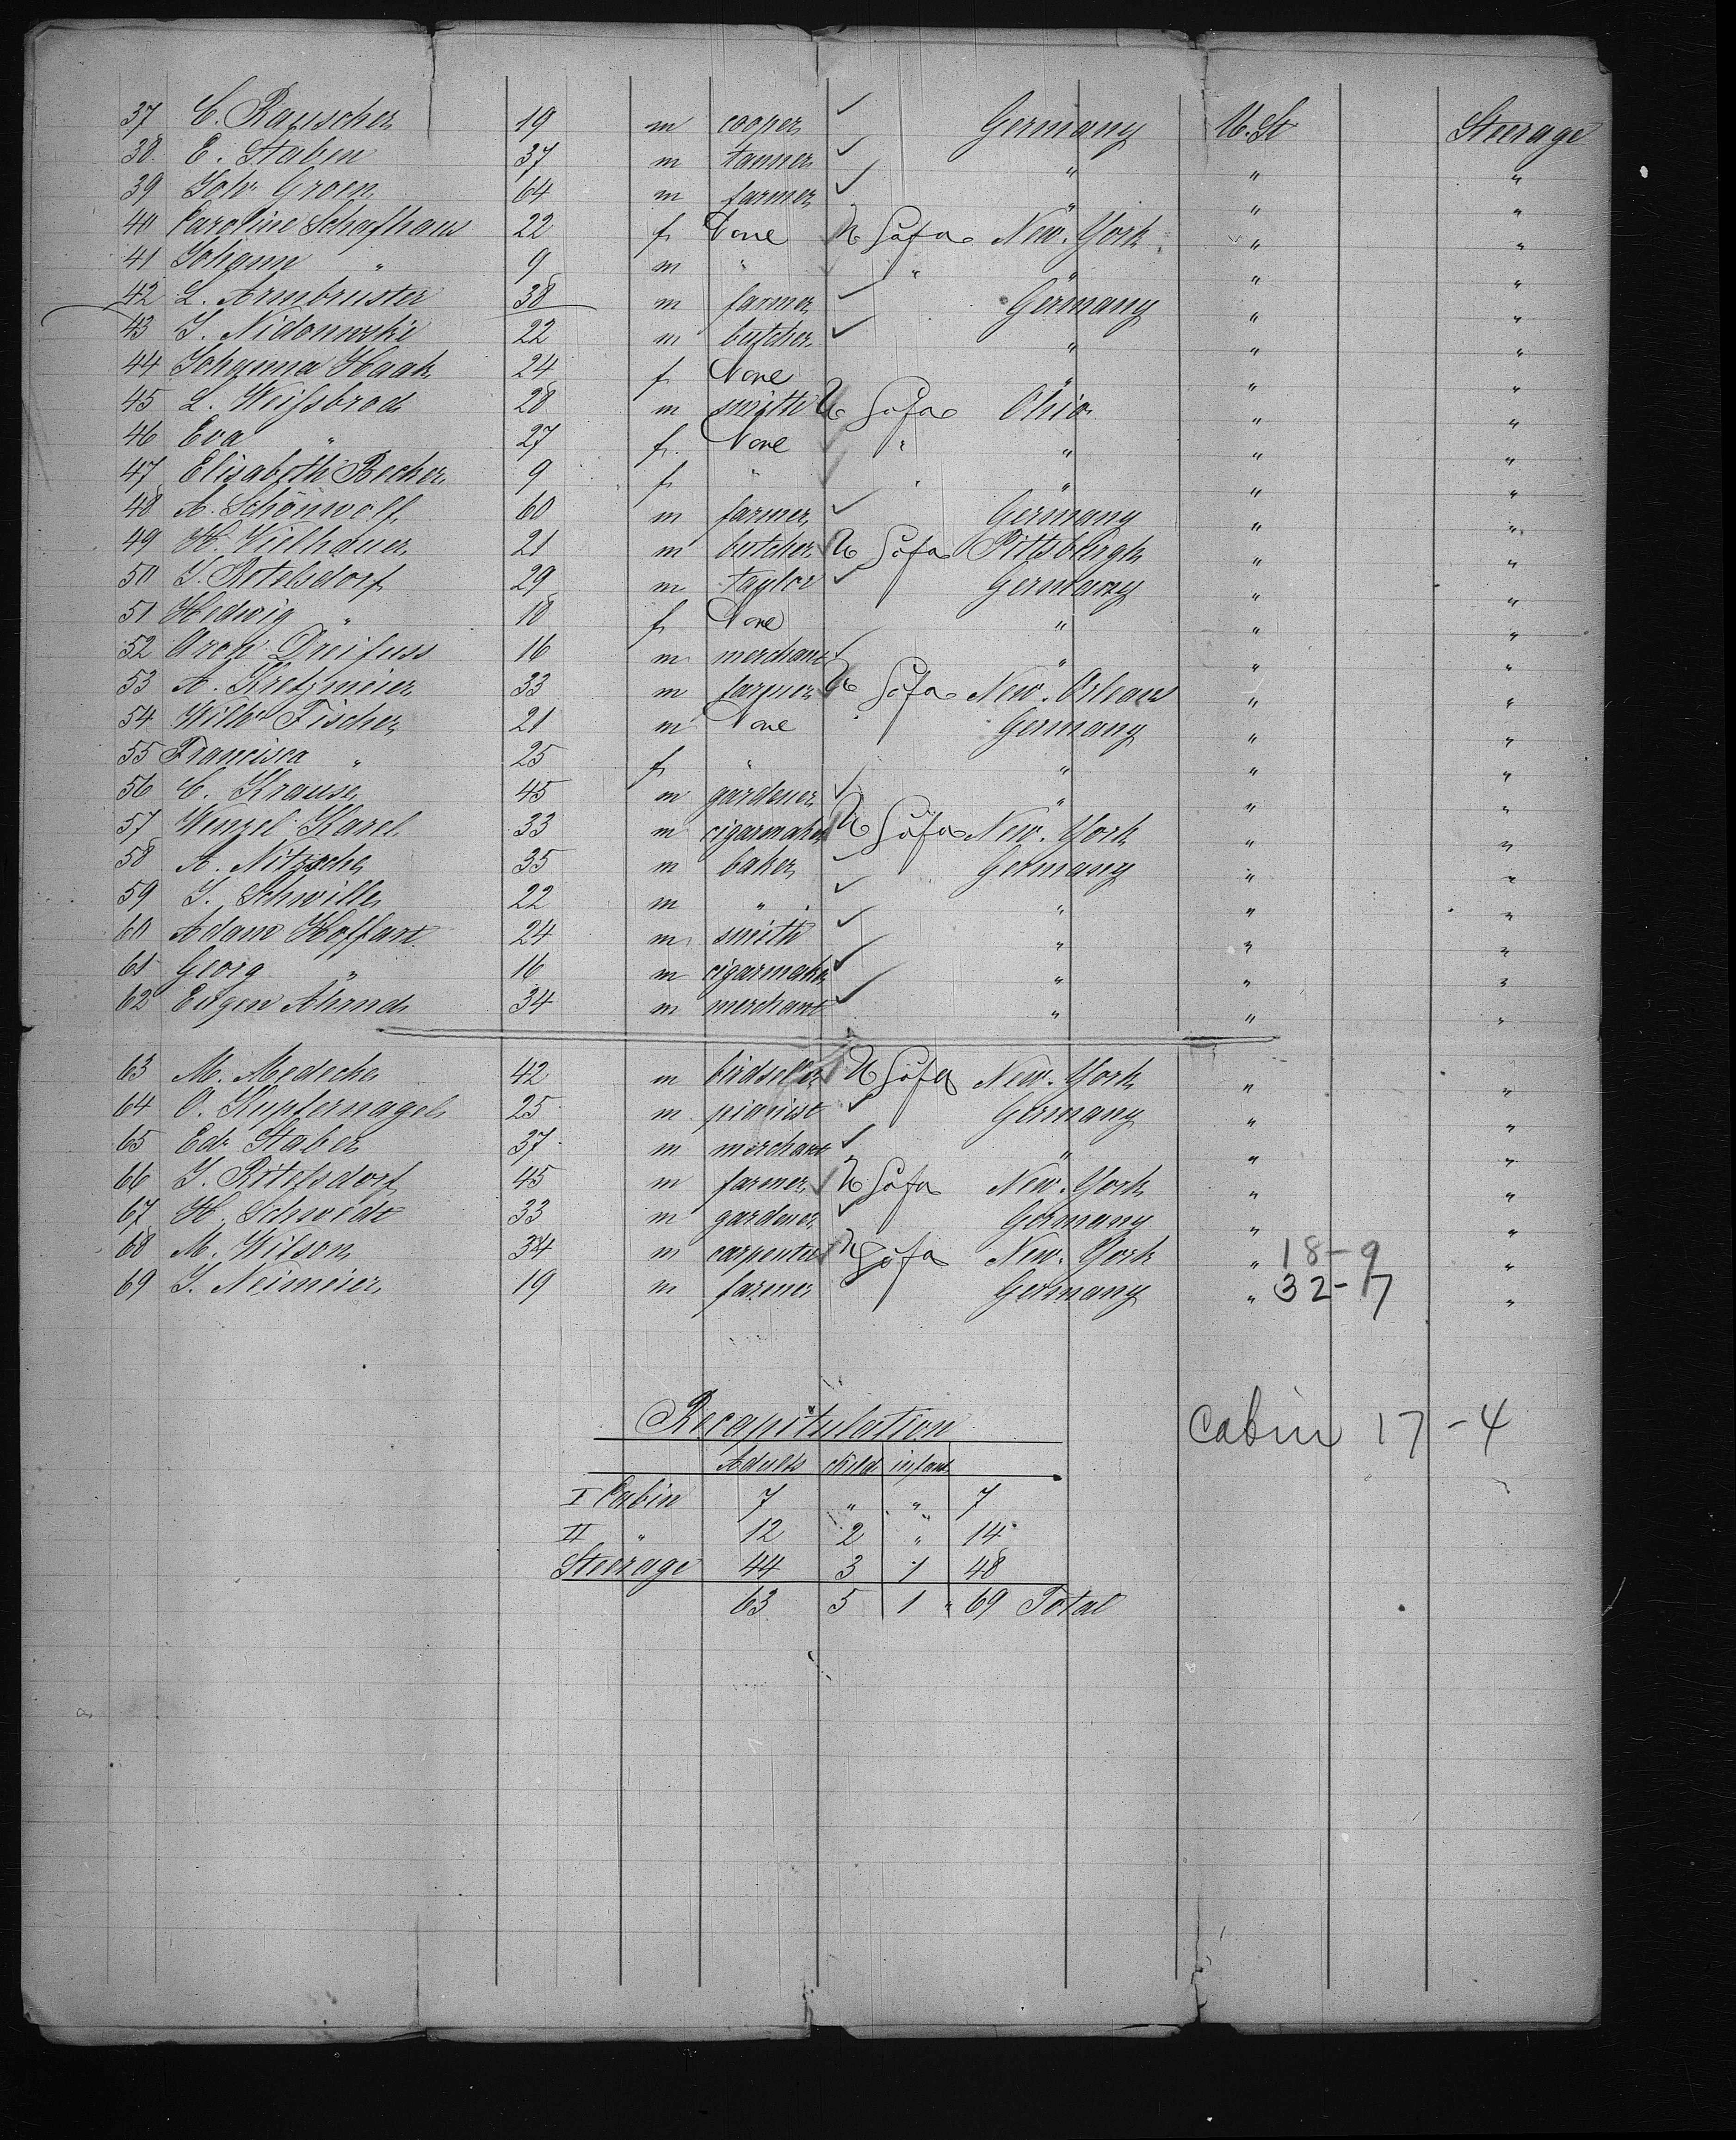 37 C. Rauscher 19 m cooper ✓ Germany U. St Steerage
38 E. Staben 37 m tanner ✓ " " "
39 Joh. Groen 64 m farmer ✓ " " "
40 Caroline Schafhaus 22 f None New-York " "
41 Johann " 9 m " " " " "
42 L. Armbruster 38 m farmer ✓ Germany " "
43 J. Nidonwski 22 m butcher ✓ " " "
44 Johanna Haak 24 f None " " "
45 L. Weifsbrod 28 m smith Ohio " "
46 Eva " 27 f. None " " " "
47 Elisabeth Becker 9 f " " " " "
48 A. Schönwolf 60 m farmer ✓ Germany " "
49 H. Vielhauer 21 m butcher Pittsburgh " "
50 J. Rotelsdorf 29 m taylor ✓ Germany " "
51 Hedwig " 18 f None " " "
52 Aron Dreifuss 16 m merchant ✓ " " "
53 A. Kretzmeier 33 m farmer New-Orleans " "
54 Wilh. Fischer 21 m None Germany " "
55 Francisca " 25 f " " " "
56 C. Krause 45 m gardener ✓ " " "
57 Wenzel Karel 33 m cigarmaker New-York " "
58 A. Nitzsche 35 m baker ✓ Germany " "
59 J. Schwille 22 m " ✓ " " "
60 Adam Hoffart 24 m smith ✓ " " "
61 Georg " 16 m cigarmaker ✓ " " "
62 Eugen 34 m merchant ✓ " " "
63 M. Medecke 42 m birdseller New-York " "
64 O. Kupfernagel 25 m pianist ✓ Germany " "
65 Ed. Staber 37 m merchant ✓ " " "
66 J. 45 m farmer New-York " "
67 H. Schwedt 33 m gardener ✓ Germany " "
68 M. Wilson 34 m carpenter New-York " 18-9 "
69 J. Neimeier 19 m farmer Germany " 32-7 "
Recapitulation
Cabin 17-4
Adults child infant
I Cabin 7 " " 7
II " 12 2 " 14
Steerage 44 3 1 48
63 5 1 69 Total